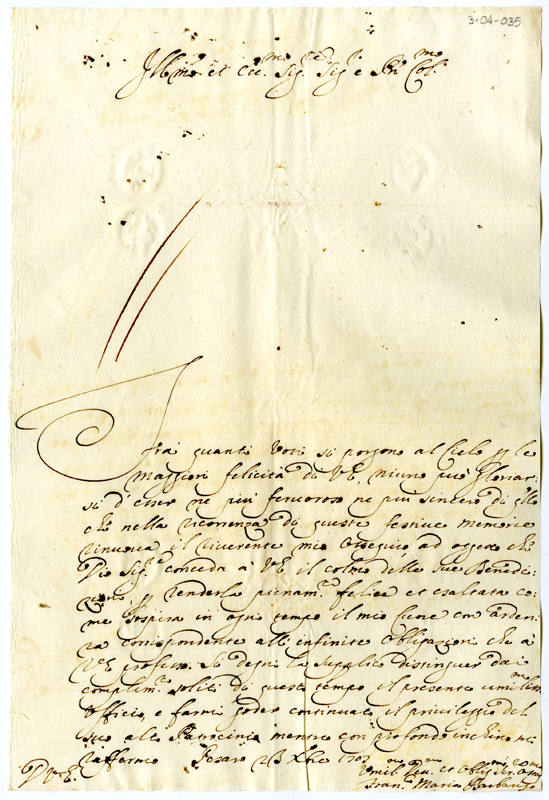 3-04-035
Ill.mo et Ecc.mo Sig.re Sig.e Pñ Col.mo
Frà quanti Voti si porgono al Cielo p le
maggiori felicità di VE, niuno può gloriar-
si d'esser ne più feruoroso ne più sincero di q.llo
che nella ricorrenza di queste festiue memorie
rinuoua il riuerente mio ossequio ad oggetto che
Dio Sig.re conceda à VE il colmo delle Sue Benedi-
zioni, p renderla pienam.te felice et esaltata co-
me sospira in ogni tempo il mio Cuore con arden-
za corrispondente all'infinite Obligazioni che à
VE professo. Si degni la Supplico distinguer dai
complim.ti soliti di questo tempo il presente umiliss.mo
Officio, e farmi goder continuato il priuileggio del
suo alto Patrocinio mentre con profondo inchino mi
raffermo Pesaro Xbre 1707
D VE.
Umil.mo Deu.mo et Oblig.mo Ser.re
Fran.co Maria